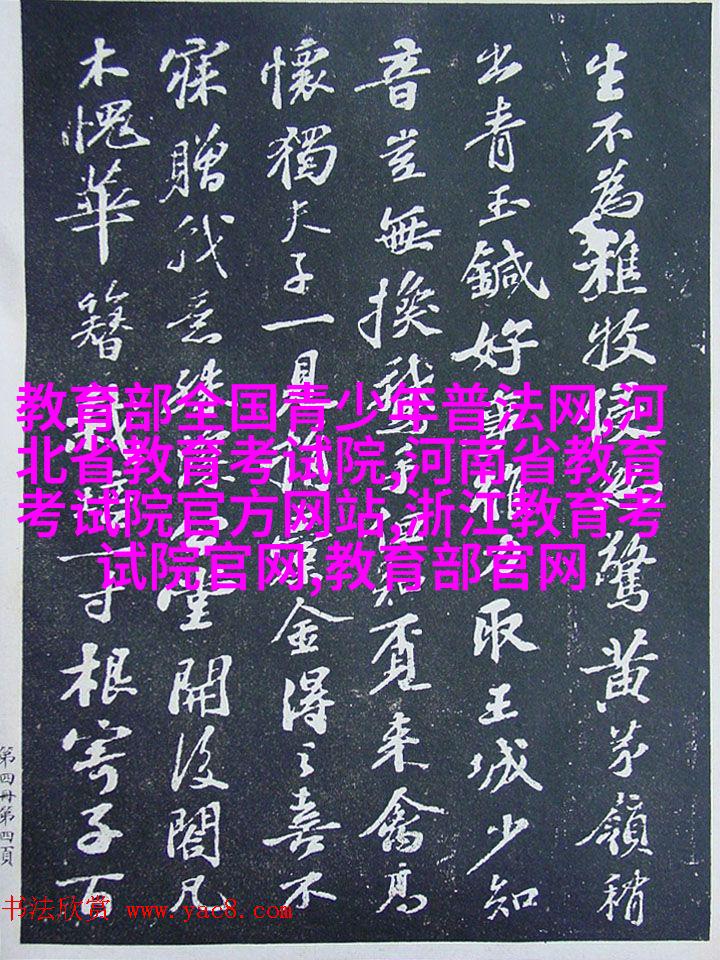 生不為牧侵驚黄茅嶺稍
出青玉鍼好事雅取王城少知
音豈無換鵝手但知覓来禽高
懷獨夫子一見捐金得之喜不
寐贈我意殊深公堂開後閤凡
木愧華簪栽培一寸根寄子百
教育部全国青少年普法网,河
北省教育考试院,河南省教育
考试院官方网站,浙江教育考
试院官网,教育部官网
第四冊第四頁
书法欣赏 www.yac8.com